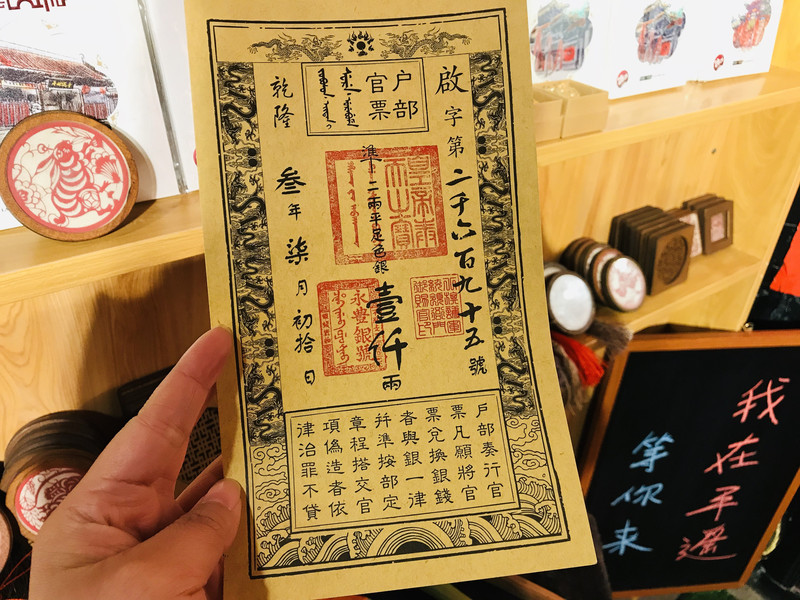 户部
官票
啟字第二千六百九十五號
準二兩平足色銀壹仟兩
乾隆叁年柒月初拾日
永豊銀號
戶部奏行官
票凡願將官
票兌換銀錢
者與銀一律
并準按部定
章程搭交官
項偽造者依
律治罪不貸
我在平遥
等你来